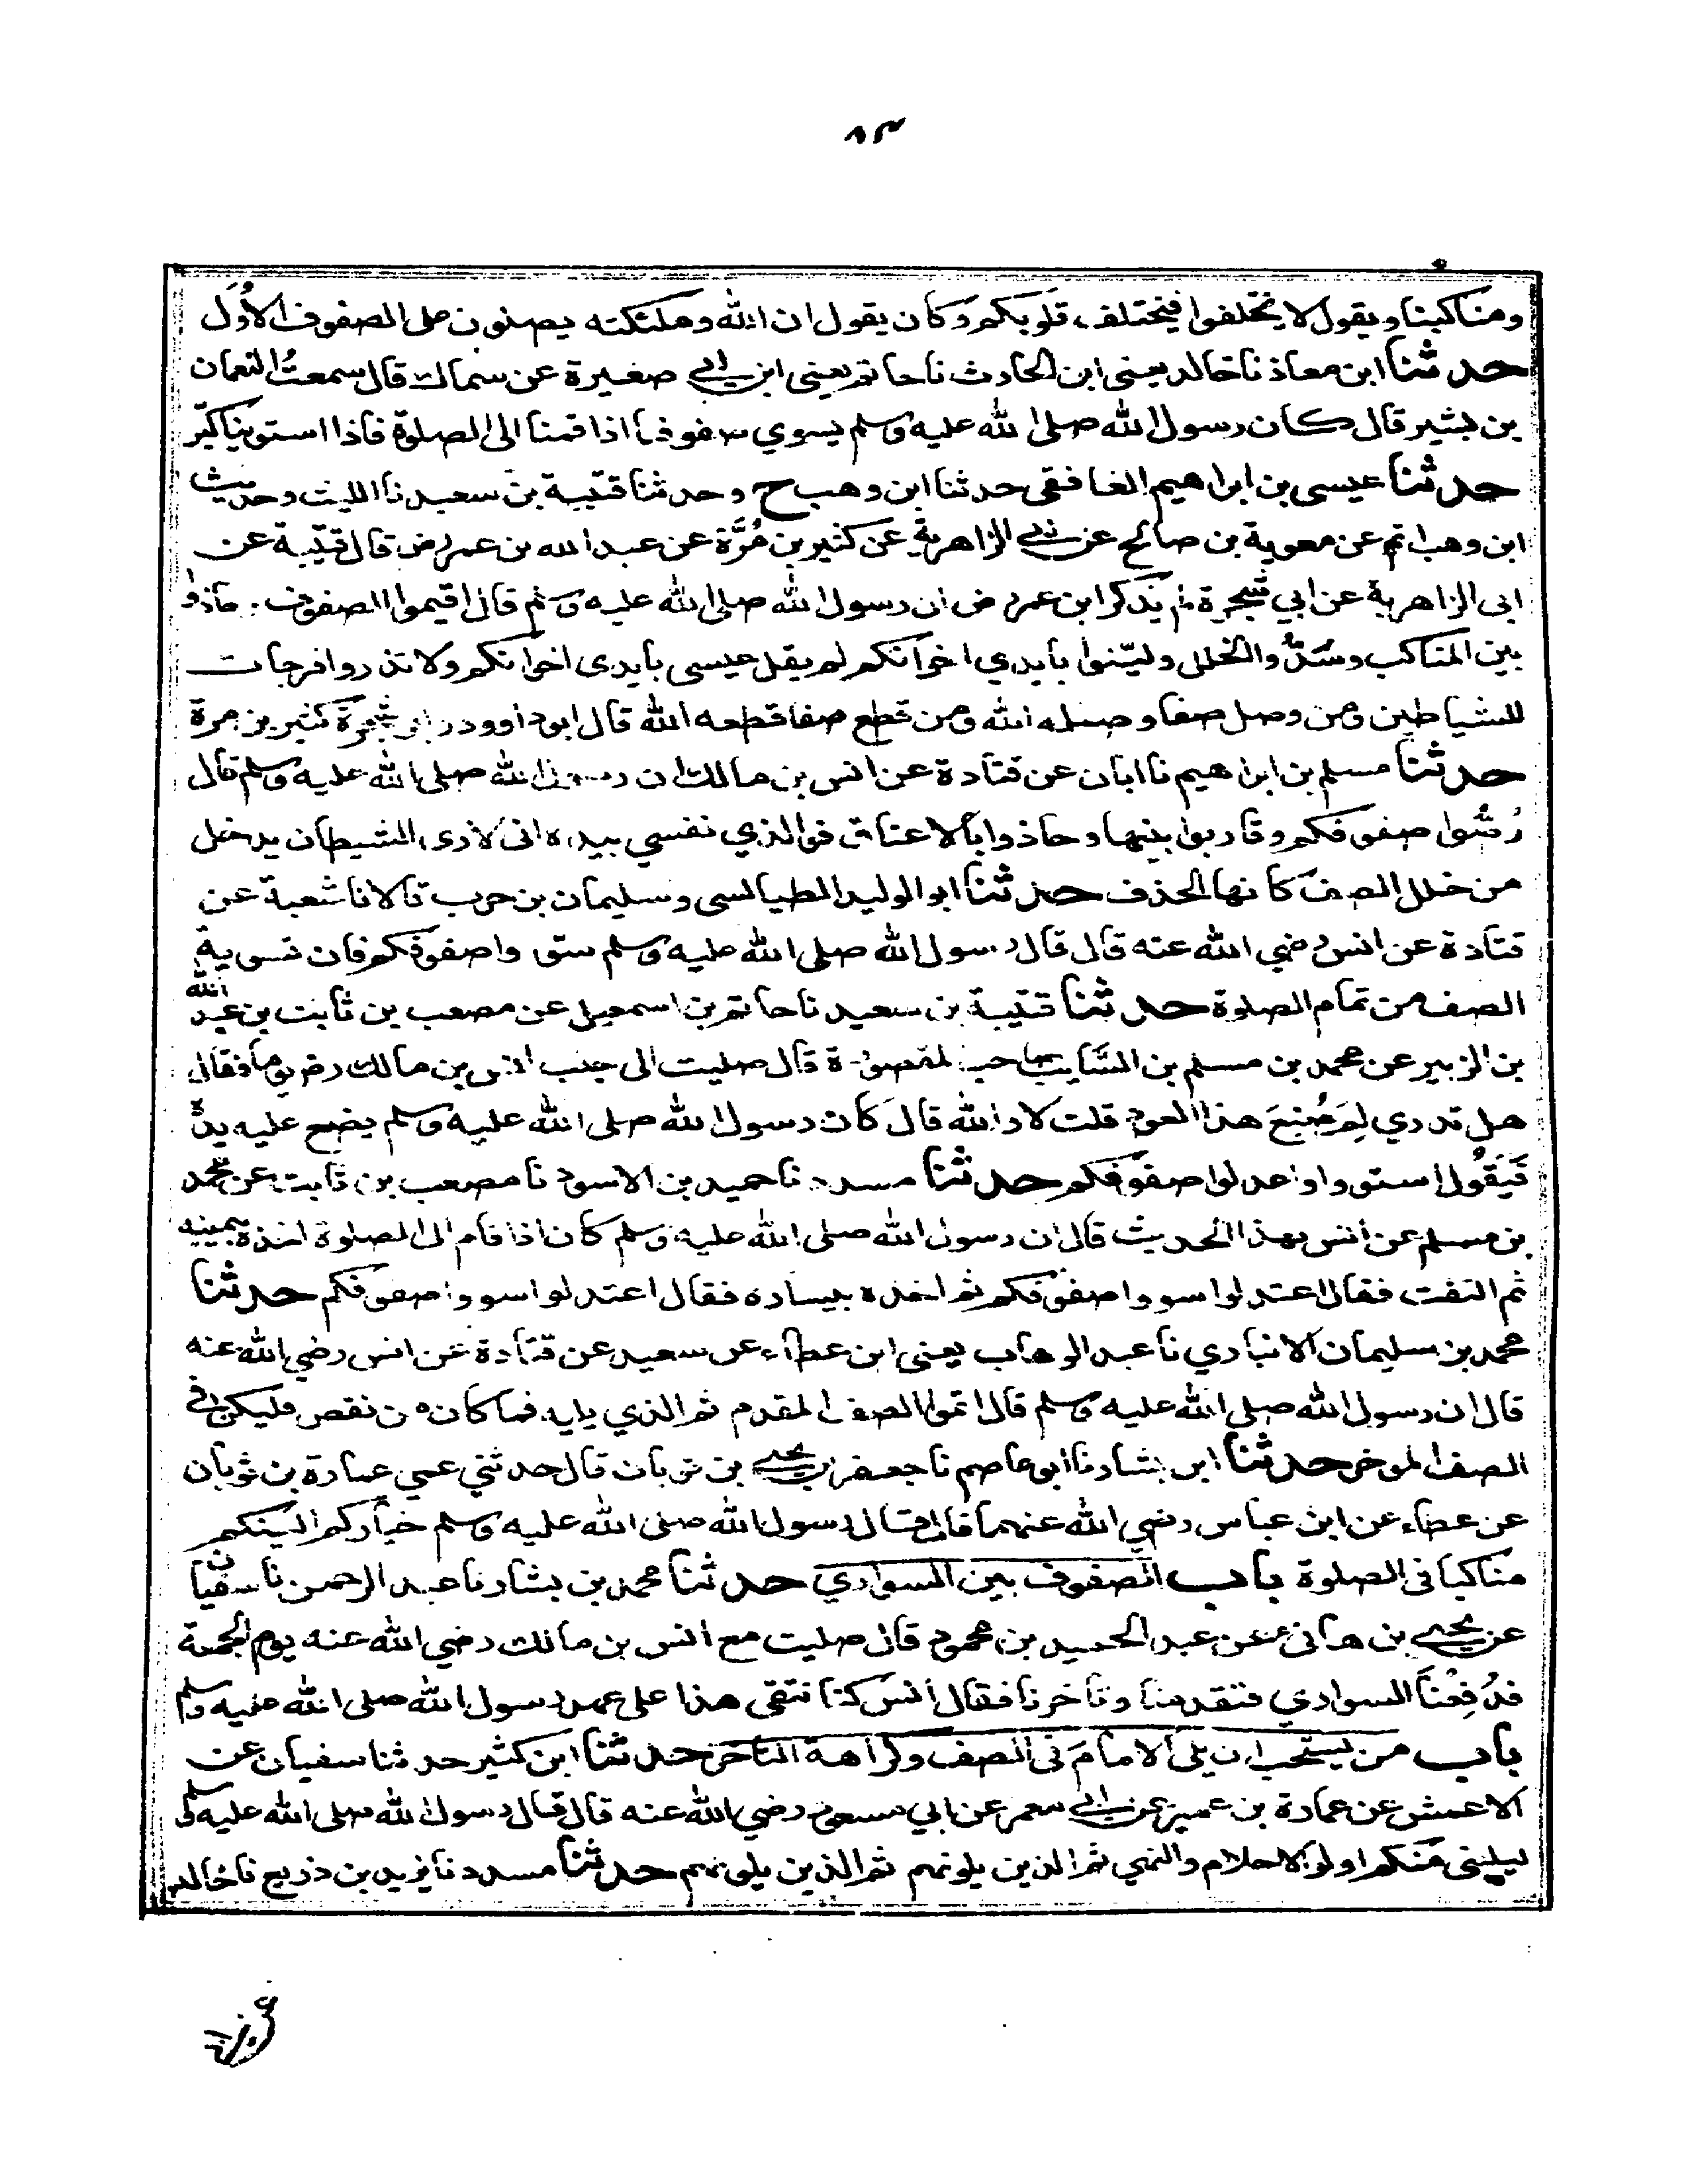 ومناكبنا ويقول لا تختلفوا فيختلف قلوبكم وكان يقول ان الله وملئكته يصلون على الصفوف الأُوَل
حدثنا ابن معاذ نا خالد يعنى ابن الحارث نا حاتم يعنى ابن ابي صغيرة عن سماك قال سمعتُ النعمان
بن بشير قال كان رسول الله صلى الله عليه وسلم يسوي صفوفنا اذا قمنا الى الصلوة فاذا استوينا كبّر
حدثنا عيسى بن ابراهيم الغافقى حدثنا ابن وهب ح وحدثنا قتيبة بن سعيد نا الليث وحديث
ابن وهب اتم عن معوية بن صالح عن ابي الزاهرية عن كثير بن مُرَّة عن عبد الله بن عمر رض قال قتيبة عن
ابى الزاهرية عن ابي شجرة لم يذكر ابن عمر رض ان رسول الله صلى الله عليه وسلم قال اقيموا الصفوف وحاذوا
بين المناكب وسُدُّوا الخلل وليّنوا بأيدي اخوانكم لم يقل عيسى بأيدى اخوانكم ولا تذروا فرجات
للشياطين ومن وصل صفا وصله الله ومن قطع صفا قطعه الله قال ابو داوود ابو شجرة كثير بن مرة
حدثنا مسلم بن ابراهيم نا ابان عن قتادة عن انس بن مالك ان رسول الله صلى الله عليه وسلم قال
رُصُّوا صفوفكم وقاربوا بينها وحاذوا بالاعناق فوالذي نفسي بيده انى لارى الشيطان يدخل
من خلل الصف كانها الحذف حدثنا ابو الوليد الطيالسى وسليمان بن حرب قالا نا شعبة عن
قتادة عن انس رضي الله عنه قال قال رسول الله صلى الله عليه وسلم سووا صفوفكم فان تسوية
الصف من تمام الصلوة حدثنا قتيبة بن سعيد نا حاتم بن اسمعيل عن مصعب بن ثابت بن عبد الله
بن الزبير عن محمد بن مسلم بن السَّايب صاحب المقصورة قال صليت الى جنب انس بن مالك رض يوما فقال
هل تدري لِمَ صُنِعَ هذا العود قلت لا والله قال كان رسول الله صلى الله عليه وسلم يضع عليه يدَه
فَيَقُول استووا واعدلوا صفوفكم حدثنا مسدد نا حميد بن الاسود نا مصعب بن ثابت عن محمد
بن مسلم عن أنس بهذا الحديث قال ان رسول الله صلى الله عليه وسلم كان اذا قام الى الصلوة اخذه بيمينه
ثم التفت فقال اعتدلوا سووا صفوفكم ثم اخذه بيساره فقال اعتدلوا سووا صفوفكم حدثنا
محمد بن سليمان الانباري نا عبد الوهاب يعنى ابن عطاء عن سعيد عن قتادة عن انس رضي الله عنه
قال ان رسول الله صلى الله عليه وسلم قال اتموا الصف المقدم ثم الذي يليه فما كان من نقص فليكن في
الصف المؤخر حدثنا ابن بشار نا ابو عاصم نا جعفر بن يحيى بن ثوبان قال حدثني عمي عمارة بن ثوبان
عن عطاء عن ابن عباس رضي الله عنهما قال قال رسول الله صلى الله عليه وسلم خياركم الينكم
مناكبا فى الصلوة باب الصفوف بين السواري حدثنا محمد بن بشار نا عبد الرحمن نا سفيان
عن يحيى بن هانئ عن عبد الحميد بن محمود قال صليت مع أنس بن مالك رضي الله عنه يوم الجمعة
فدُفِعْنا السواري فتقدمنا وتأخرنا فقال أنس كنا نتقى هذا على عهد رسول الله صلى الله عليه وسلم
باب من يستحب ان يلى الامام فى الصف وكراهة التأخر حدثنا ابن كثير حدثنا سفيان عن
الاعمش عن عمارة بن عمير عن ابي معمر عن ابي مسعود رضي الله عنه قال قال رسول الله صلى الله عليه وسلم
ليلينى منكم اولوا الاحلام والنهي ثم الذين يلونهم ثم الذين يلونهم حدثنا مسدد نا يزيد بن زريع نا خالد